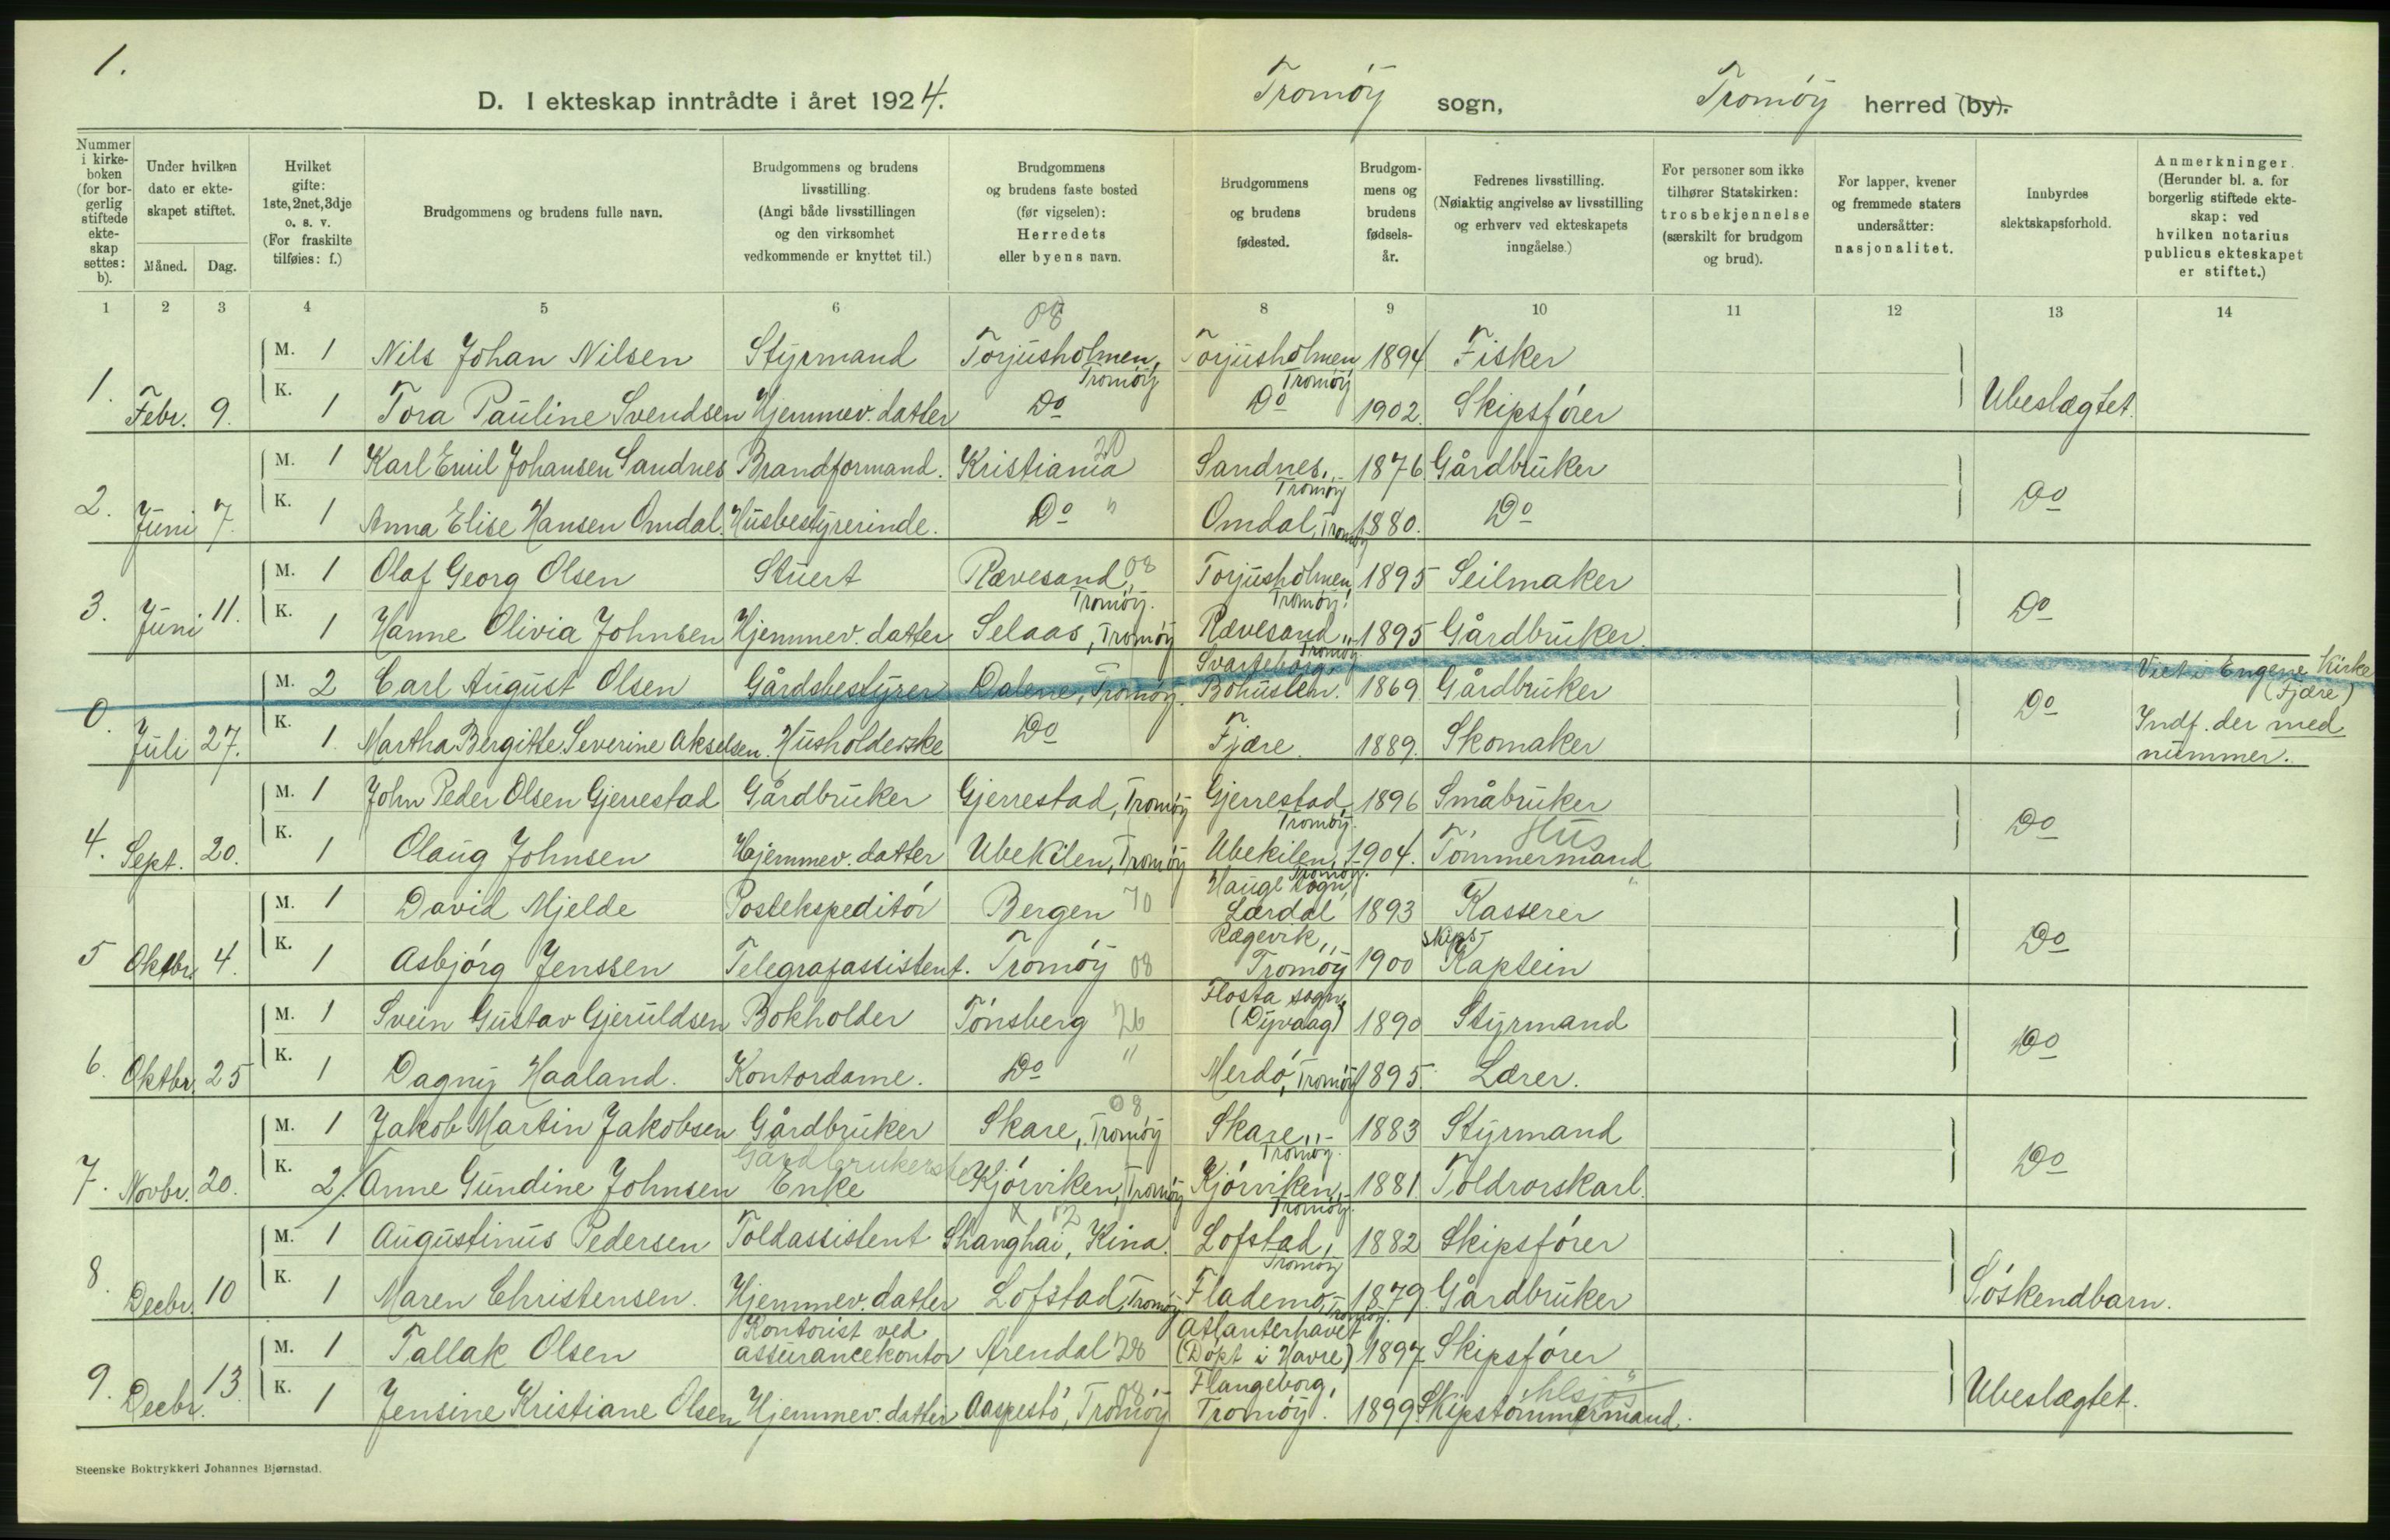 1.
D. I ekteskap inntrådte i året 1924. Tromöy sogn, Tromöy herred (by).
Nummer i kirkeboken (for borgerlig stiftede ekteskap settes: b).
Under hvilken dato er ekteskapet stiftet.
Måned. Dag.
Hvilket gifte: 1ste, 2net, 3dje o. s. v. (For fraskilte tilføies: f.)
Brudgommens og brudens fulle navn.
Brudgommens og brudens livsstilling. (Angi både livsstillingen og den virksomhet vedkommende er knyttet til.)
Brudgommens og brudens faste bosted (før vigselen): Herredets eller byens navn.
Brudgommens og brudens fødested.
Brudgommens og brudens fødselsår.
Fedrenes livsstilling. (Nøiaktig angivelse av livsstilling og erhverv ved ekteskapets inngåelse.)
For personer som ikke tilhører Statskirken: trosbekjennelse (særskilt for brudgom og brud).
For lapper, kvener og fremmede staters undersåtter: nasjonalitet.
Innbyrdes slektskapsforhold.
Anmerkninger. (Herunder bl. a. for borgerlig stiftede ekteskap: ved hvilken notarius publicus ekteskapet er stiftet.)
1 2 3 4 5 6 7 8 9 10 11 12 13 14
08
M. 1 Nils Johan Nilsen Styrmand Torjusholmen, Tromöy Torjusholmen Tromöy 1894 Fisker
1. Febr. 9. K. 1 Tora Pauline Svendsen Hjemmev. datter Do Do 1902. Skipsförer Ubeslægtet.
M. 1 Karl Emil Johansen Sandnes Brandformand. Kristiania 20 Sandnes, Tromöy 1876 Gårdbruker
2. Juni 7. K. 1 Anna Elise Hansen Omdal. Husbestyrerinde. Do " Omdal, Tromöy 1880. Do Do
M. 1 Olaf Georg Olsen Stuert Rævesand, Tromöy. 08 Torjusholmen, Tromöy. 1895 Seilmaker
3. Juni 11. K. 1 Hanne Olivia Johnsen Hjemmev. datter Selaas, Tromöy Rævesand, Tromöy 1895 Gårdbruker. Do
M. 2 Carl August Olsen Gårdsbestyrer Dalene, Tromöy. Svarteborg, Bohuslen. 1869. Gårdbruker Viet i Engene Kirke (Fjære)
0. Juli 27. K. 1. Martha Bergitte Severine Akselsen. Husholderske Do Fjære. 1889. Skomaker Do Indf. der med nummer.
M. 1 John Peder Olsen Gjerrestad Gårdbruker Gjerrestad, Tromöy Gjerrestad, Tromöy. 1896 Småbruker
4. Sept. 20. K. 1 Olaug Johnsen Hjemmev. datter Ubekilen, Tromöy Ubekilen, Tromöy. 1904. Hus Tömmermand Do
M. 1 David Mjelde Postekspeditör Bergen 70 Hauge sogn, Lærdal 1893 Kasserer
5 Oktbr. 4. K. 1 Asbjörg Jenssen Telegrafassistent. Tromöy 08 Rægevik, Tromöy 1900 Skips- Kaptein Do
M. 1 Svein Gustav Gjeruldsen Bokholder Tönsberg 26 Flosta sogn, (Dyvaag) 1890 Styrmand
6. Oktbr. 25 K. 1 Dagny Haaland. Kontordame. Do " Merdö, Tromöy 1895. Lærer. Do
M. 1 Jakob Martin Jakobsen Gårdbruker Skare, Tromöy 08 Skare, Tromöy. 1883 Styrmand
7. Novbr. 20. K. 2. Anne Gundine Johnsen Gårdbrukerske Enke Kjörviken, Tromöy Kjörviken, Tromöy. 1881. Toldrorskarl. Do
M. 1 Augustinus Pedersen Toldassistent Shanghai, Kina. Lofstad, Tromöy 1882 Skipsförer
8. Decbr. 10 K. 1 Maren Christensen. Hjemmev. datter Lofstad, Tromöy Flademo, Tromöy. 1879. Gårdbruker Söskendbarn.
M. 1 Tallak Olsen Kontorist ved assurancekontor Arendal 28 Atlanterhavet (Döpt i Havre) 1897 Skipsförer
9. Decbr. 13. K. 1 Jensine Kristiane Olsen Hjemmev. datter Aaspestö, Tromöy 08 Flangeborg, Tromöy. 1899. Skipstömmermand. Ubeslægtet.
Steenske Boktrykkeri Johannes Bjørnstad.